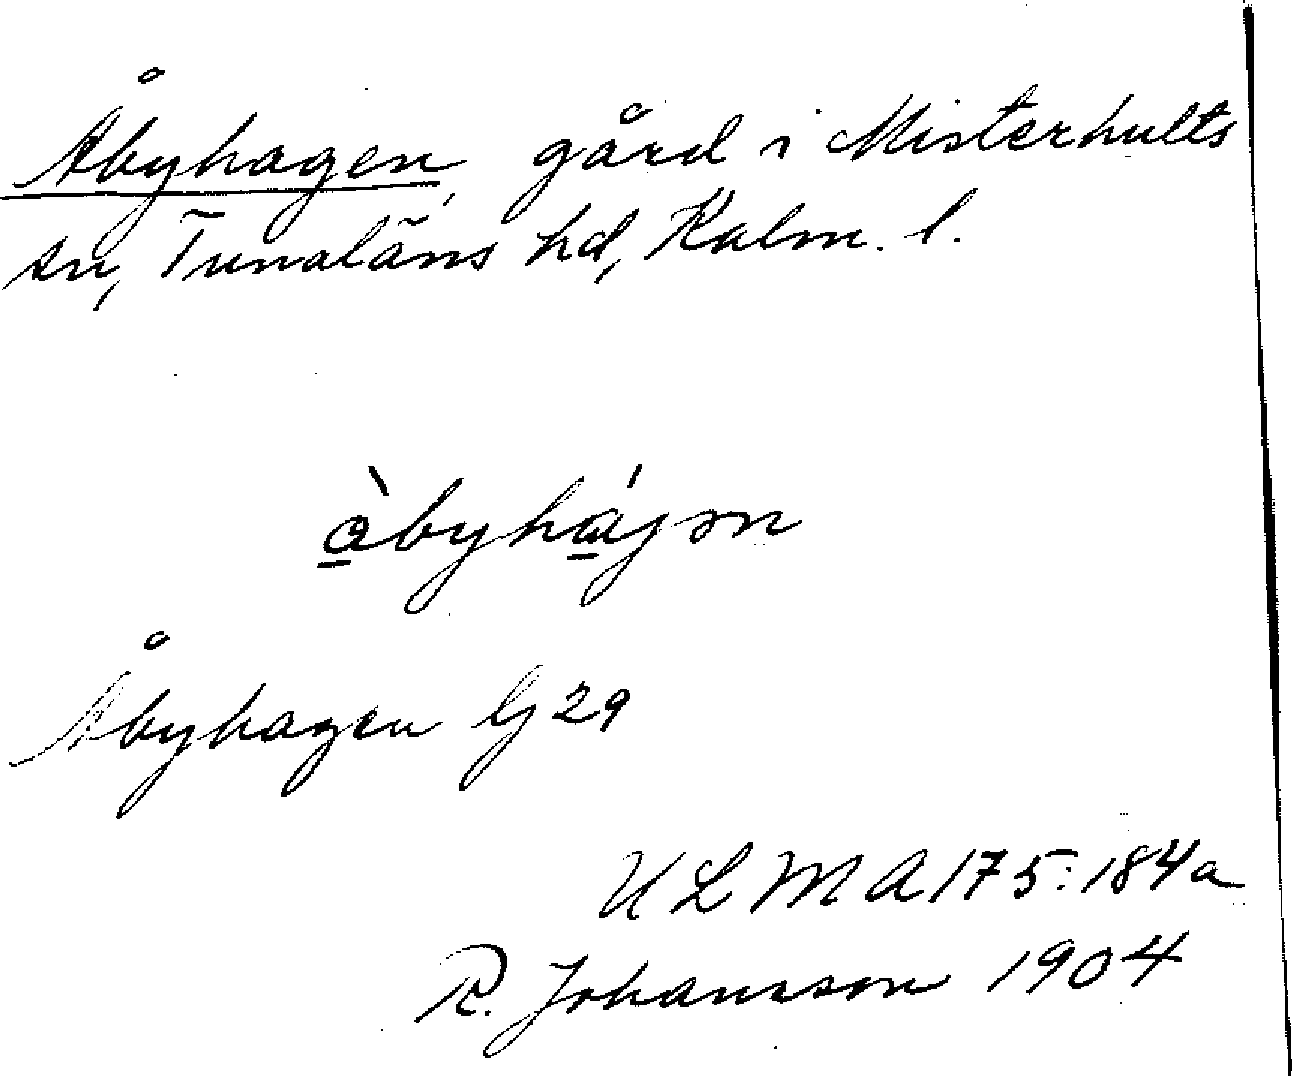 Åbyhagen, gård i Misterhults
sn, Tunaläns hd, Kalm. l.
å̱̀byhá̱jən
Åbyhagen G 29
ULMA 175:184a
R. Johansson 1904